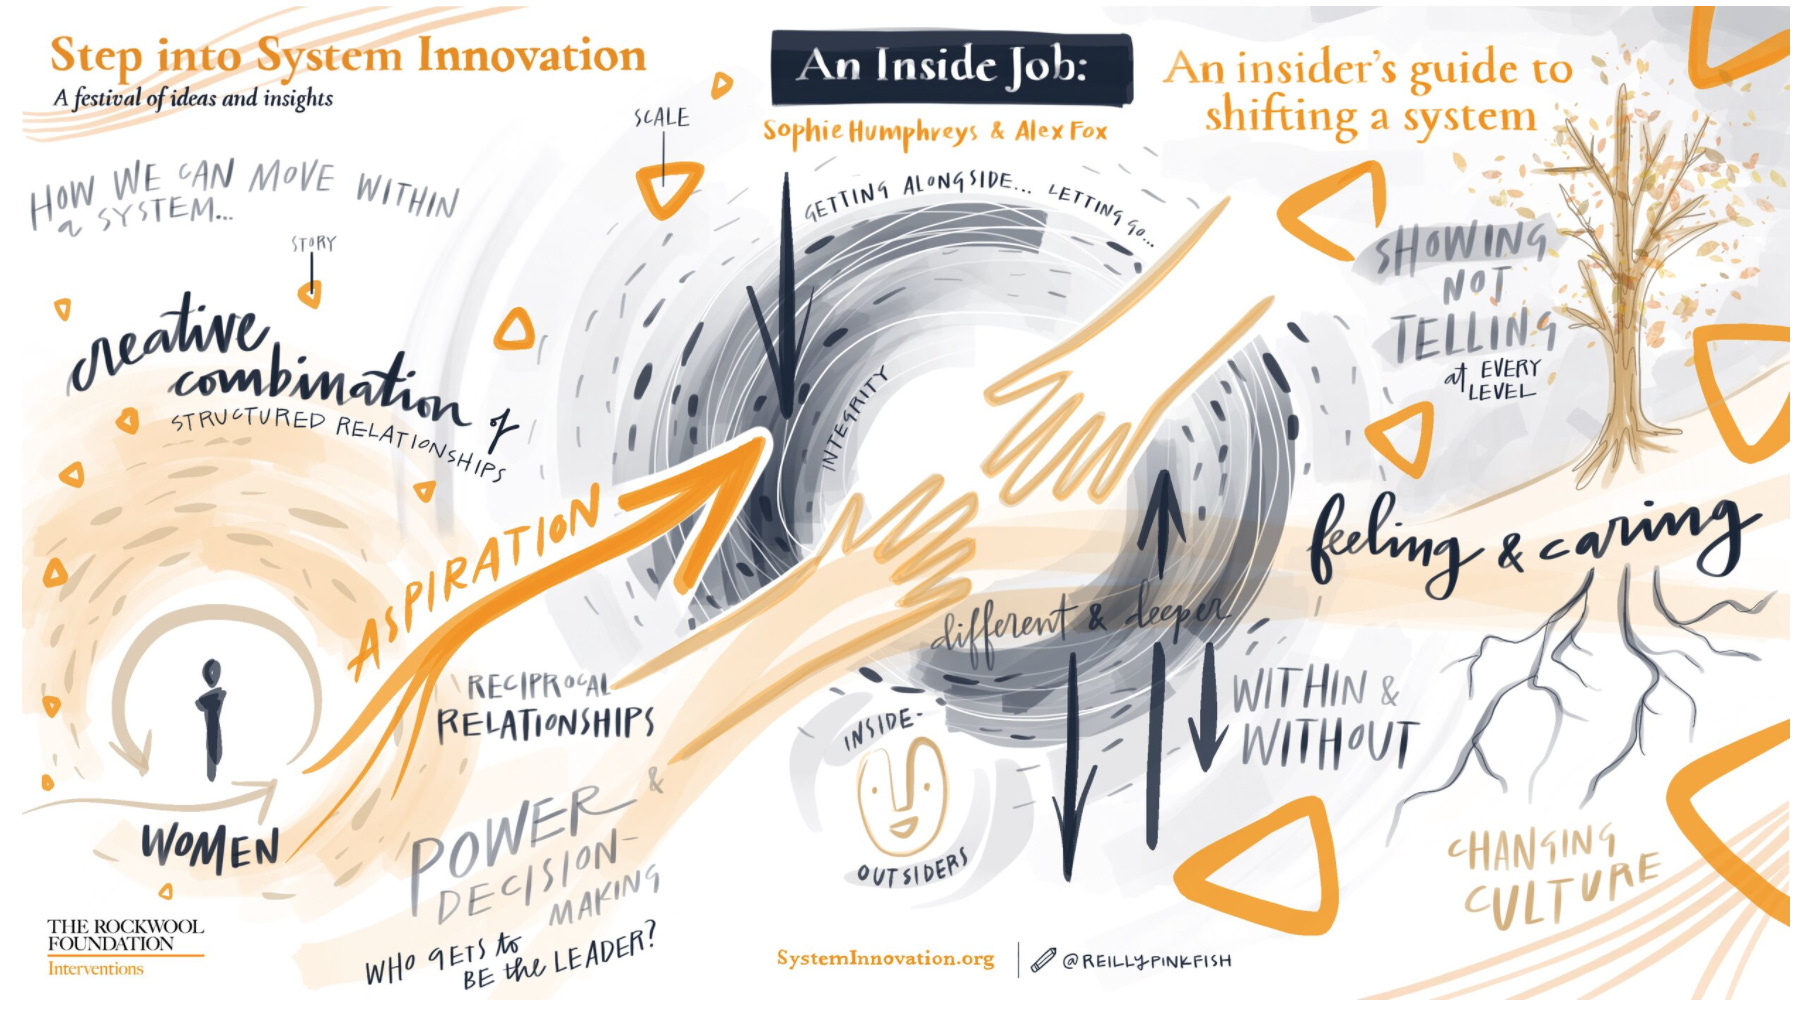 Step into System Innovation
A festival of ideas and insights
An Inside Job:
Sophie Humphreys & Alex Fox
An insider's guide to
shifting a system
HOW WE CAN MOVE WITHIN
a SYSTEM...
STORY
SCALE
creative
combination of
STRUCTURED RELATIONSHIPS
GETTING ALONGSIDE... LETTING go...
INTEGRITY
ASPIRATION
SHOWING
NOT
TELLING
at EVERY
LEVEL
feeling & caring
different & deeper
WITHIN &
WITHOUT
RECIPROCAL
RELATIONSHIPS
&
POWER
DECISION-
MAKING
WHO GETS to
BE the LEADER?
WOMEN
INSIDE-
OUTSIDERS
CHANGING
CULTURE
THE ROCKWOOL
FOUNDATION
Interventions
SystemInnovation.org
@REILLYPINKFISH